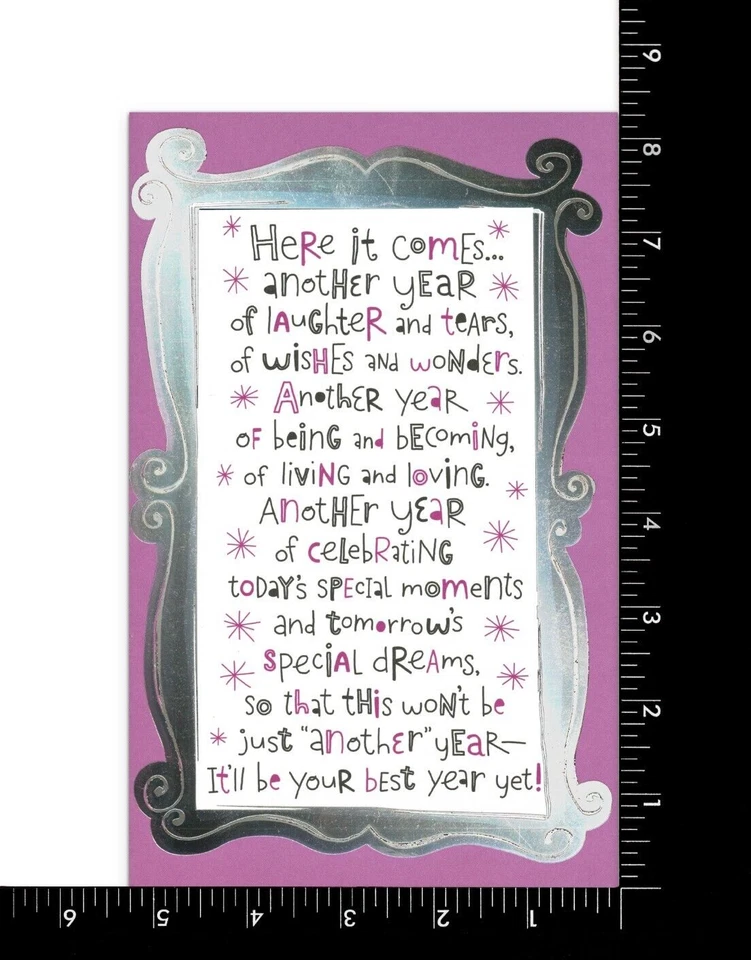 Here it comes...
another year
of laughter and tears,
of wishes and wonders.
Another year
of being and becoming,
of living and loving.
Another year
of celebrating
today's special moments
and tomorrow's
special dreams,
so that this won't be
just "another" year—
It'll be your best year yet!
9
8
7
6
5
4
3
2
1
6
5
4
3
2
1